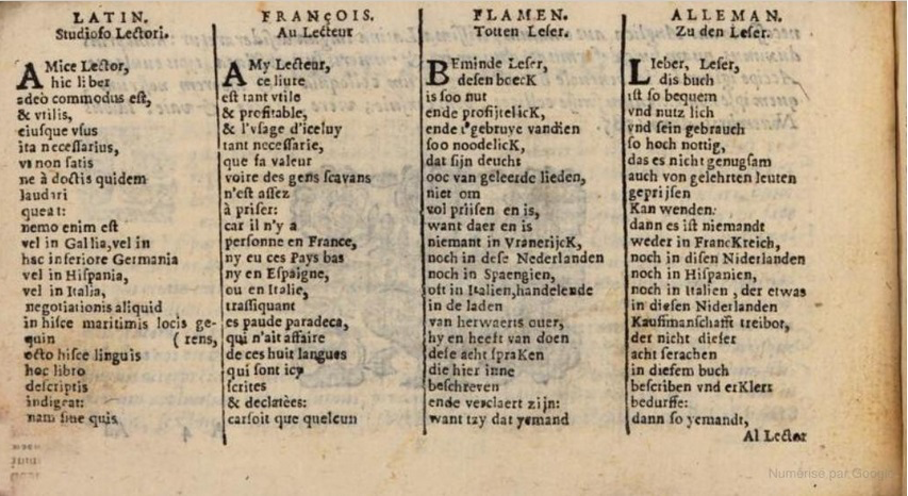 LATIN.
Studioso Lectori.
AMice Lector,
hic liber
adeò commodus est,
& vtilis,
eiusque vsus
ita necessarius,
vt non satis
ne à doctis quidem
laudari
queat:
nemo enim est
vel in Gallia, vel in
hac inferiore Germania
vel in Hispania,
vel in Italia,
negotiationis aliquid
in hisce maritimis locis ge-
quin (rens,
octo hisce linguis
hoc libro
descriptis
indigeat:
nam sine quis
FRANçOIS.
Au Lecteur
AMy Lecteur,
ce liure
est tant vtile
& profitable,
& l'vsage d'iceluy
tant necessarie,
que sa valeur
voire des gens scavans
n'est assez
à priser:
car il n'y a
personne en France,
ny eu ces Pays bas
ny en Espaigne,
ou en Italie,
traffiquant
es paude paradeca,
qui n'ait affaire
de ces huit langues
qui sont icy
scrites
& declatèes:
car soit que quelcun
FLAMEN.
Totten Leser.
BEminde Leser,
desen boecK
is soo nut
ende profijtelicK,
ende t'gebruyc vandien
soo noodelicK,
dat sijn deucht
ooc van geleerde lieden,
niet om
vol priisen en is,
want daer en is
niemant in VranerijcK,
noch in dese Nederlanden
noch in Spaengien,
oft in Italien, handelende
in de laden
van herwaerts ouer,
hy en heeft van doen
dese acht spraKen
die hier inne
beschreven
ende verclaert zijn:
want tzy dat yemand
ALLEMAN.
Zu den Leser.
LIeber, Leser,
dis buch
ist so bequem
vnd nutz lich
vnd sein gebrauch
so hoch nottig,
das es nicht genugsam
auch von gelehrten leuten
geprijsen
Kan wenden:
dann es ist niemandt
weder in FrancKreich,
noch in disen Niderlanden
noch in Hispanien,
noch in Italien, der etwas
in diesen Niderlanden
Kauffmanschafft treibor,
der nicht dieser
acht serachen
in diesem buch
bescriben vnd erKlert
bedursse:
dann so yemandt,
Al Lector
Numérisé par Google